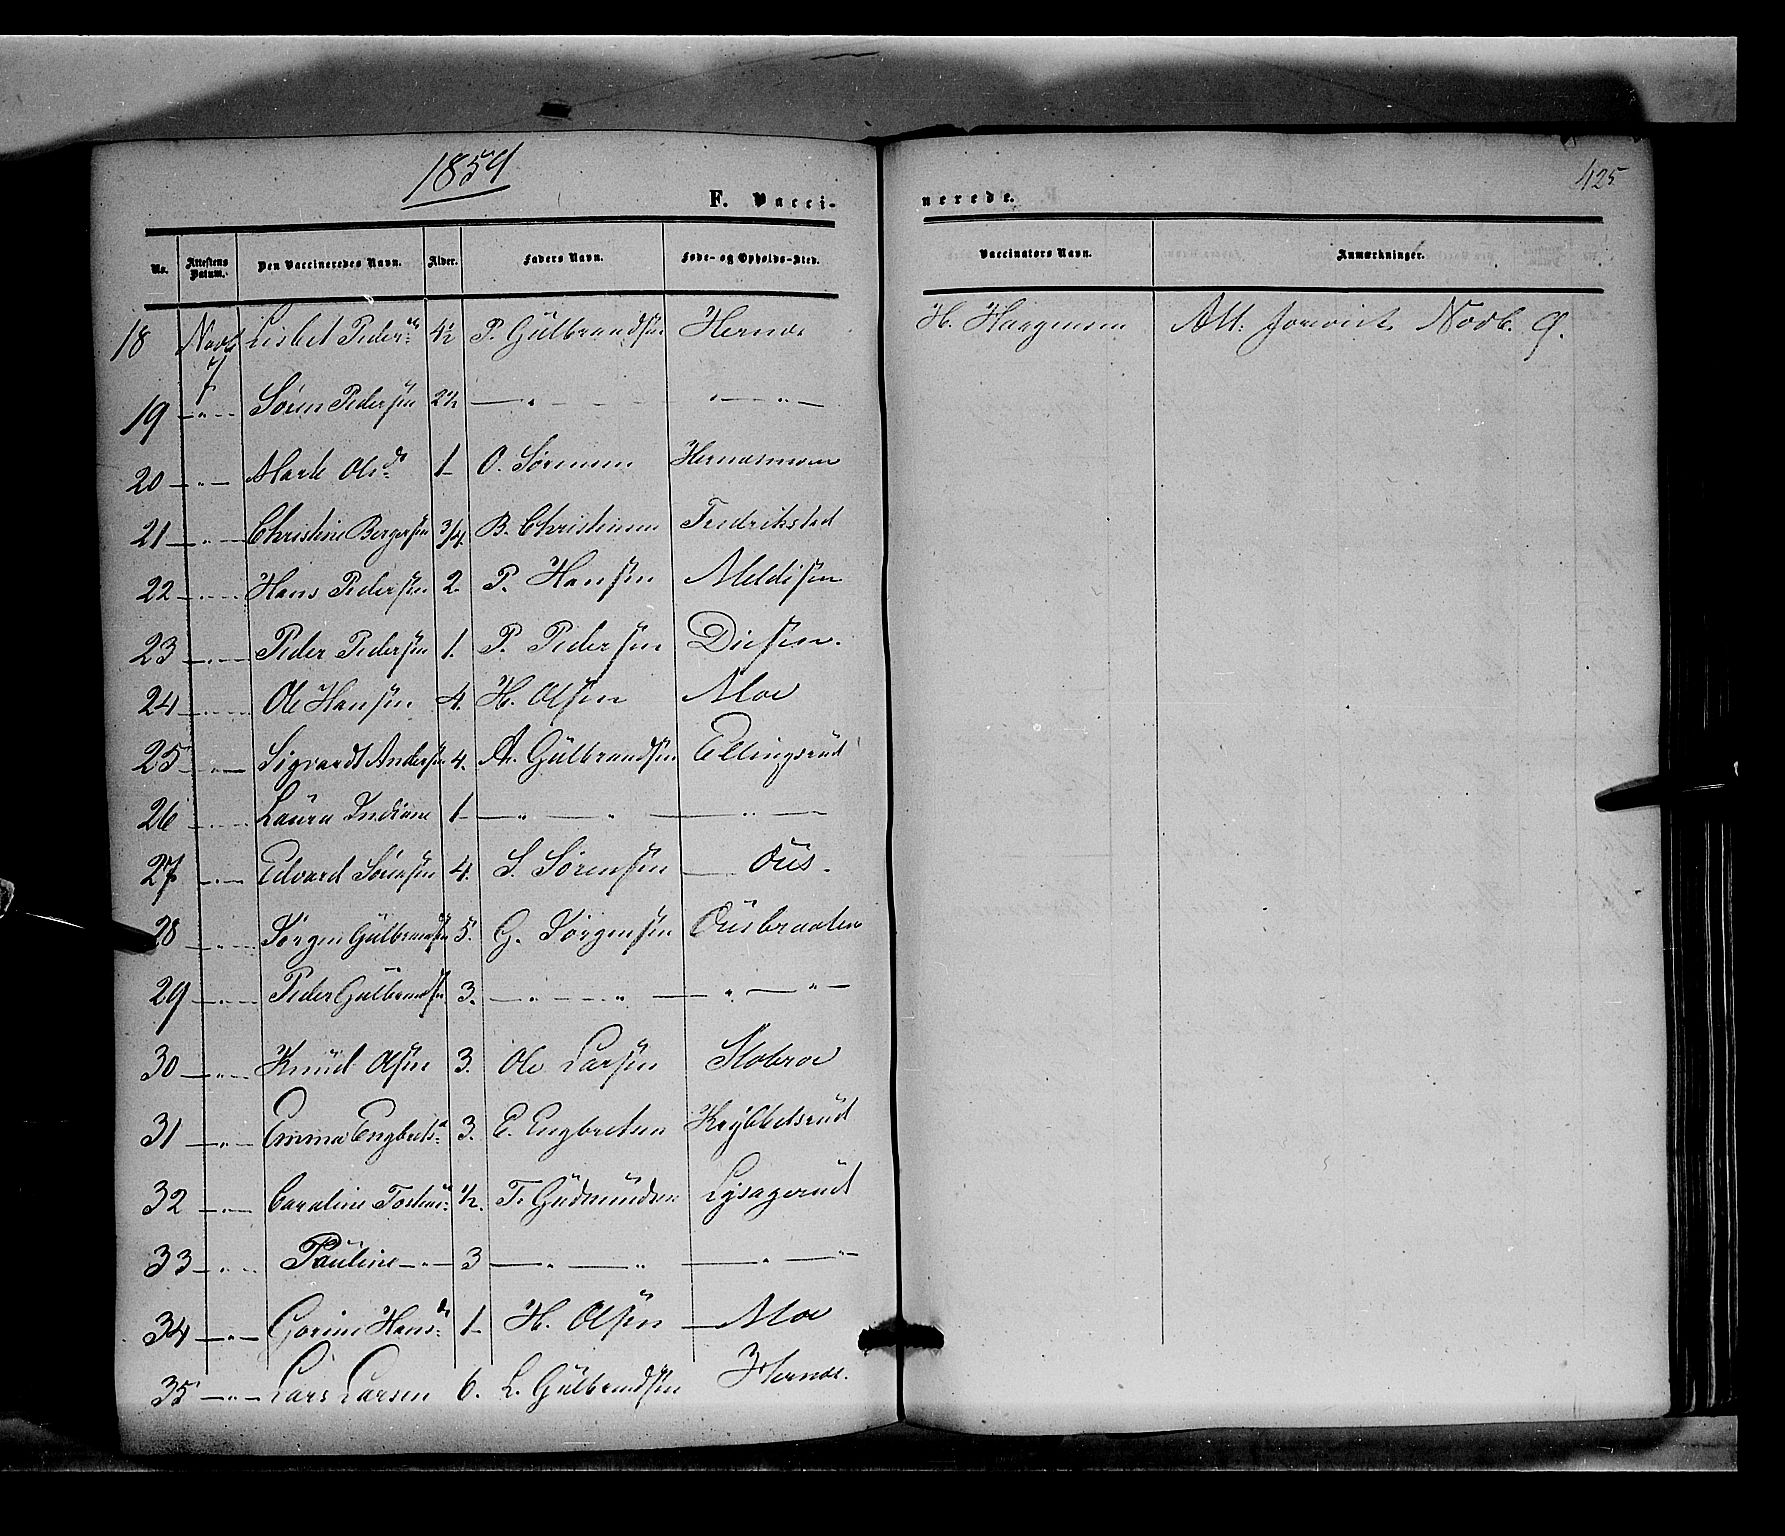 1859
425
F. Vacci-
nerede.
No. Attestens Datum. Den Vaccineredes Navn. Alder. Faders Navn. Føde- og Opholds-Sted. Vaccinators Navn. Anmærkninger.
18 Novb 7 Lisbet Pedersd. 4½ P. Gülbrandsen Hernæs H. Haagensen Att: Novb. 9.
19 — " — Søren Pedersen 2½ — " — — " —
20 — " — Olsd. 1 O. Sørensen Hernæsmoen
21 — " — Christine Bergersen 3/4 B. Christensen Fredrikstad
22 — " — Hans Pedersen 2. P. Hansen Meldisen
23 — " — Peder Pedersen 1. P. Pedersen Diesen.
24 — " — Ole Hansen 4. H. Olsen Moe
25 — " — Sigvardt Andersen 4. A. Gülbrandsen Ellingsrüd
26 — " — Laüra Indiane 1 — " — " — " —
27 — " — Edvard Sørensen 4. S. Sørensen — Oüs.
28 — " — Jørgen Gülbrandsen 5. G. Jørgensen Oüsbraaten
29 — " — Peder Gülbrandsen 3. — " — " — " — " —
30 — " — Knüd Olsen 3. Ole Larsen Slobroe
31 — " — Emma Engbrets. 3. E. Engbretsen Krÿbbelsrüd
32 — " — Caroline ½. T. Güdmündsen Lysagerüd
33 — " — Paüline — " — 3 — " — " — " — " —
34 — " — Gorine Hansd. 1 H. Olsen — Moe
35 — " — Lars Larsen 6. L. Gülbrandsen Hernæs.